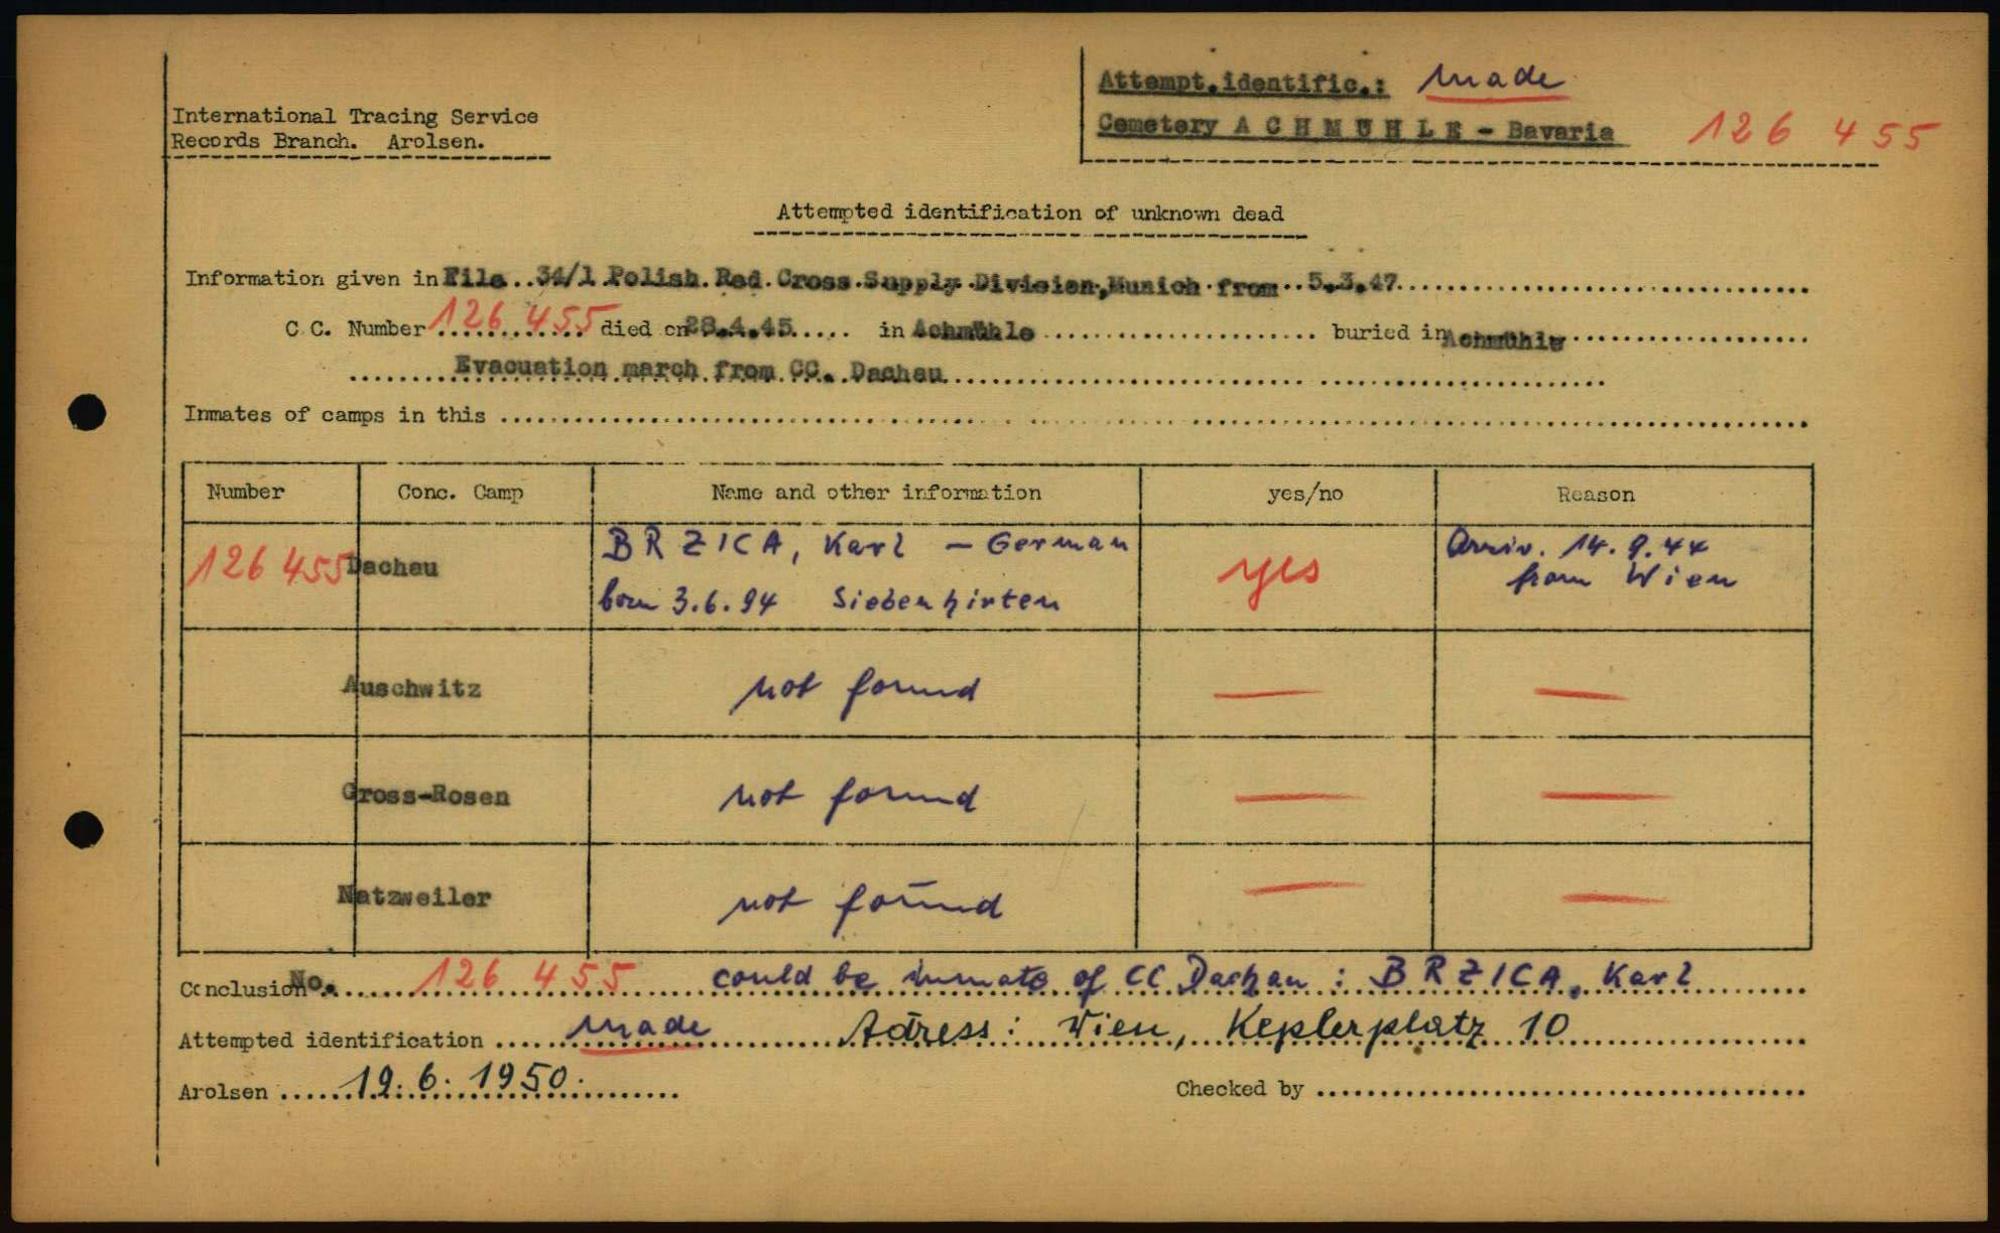 International Tracing Service
Records Branch. Arolsen.
Attempt.identific.: made
Cemetery A C H M Ü H L E - Bavaria 126 455
Attempted identification of unknown dead
Information given in File..34/1 Polish.Red.Cross.Supply.Division,Munich from..5.3.47
C.C. Number 126 455 died on 28.4.45 in Achmühle buried in Achmühle
Evacuation march from CC. Dachau
Inmates of camps in this
Number Conc. Camp Name and other information yes/no Reason
126 455 Dachau BRZICA, Karl - German yes Arriv. 14.9.44
born 3.6.94 Siebenhirten from Wien
Auschwitz not found — —
Gross-Rosen not found — —
Natzweiler not found — —
Conclusion No. 126 455 could be inmate of CC Dachau : BRZICA, Karl
Attempted identification made Adress: Wien, Keplerplatz 10
Arolsen 19.6.1950. Checked by